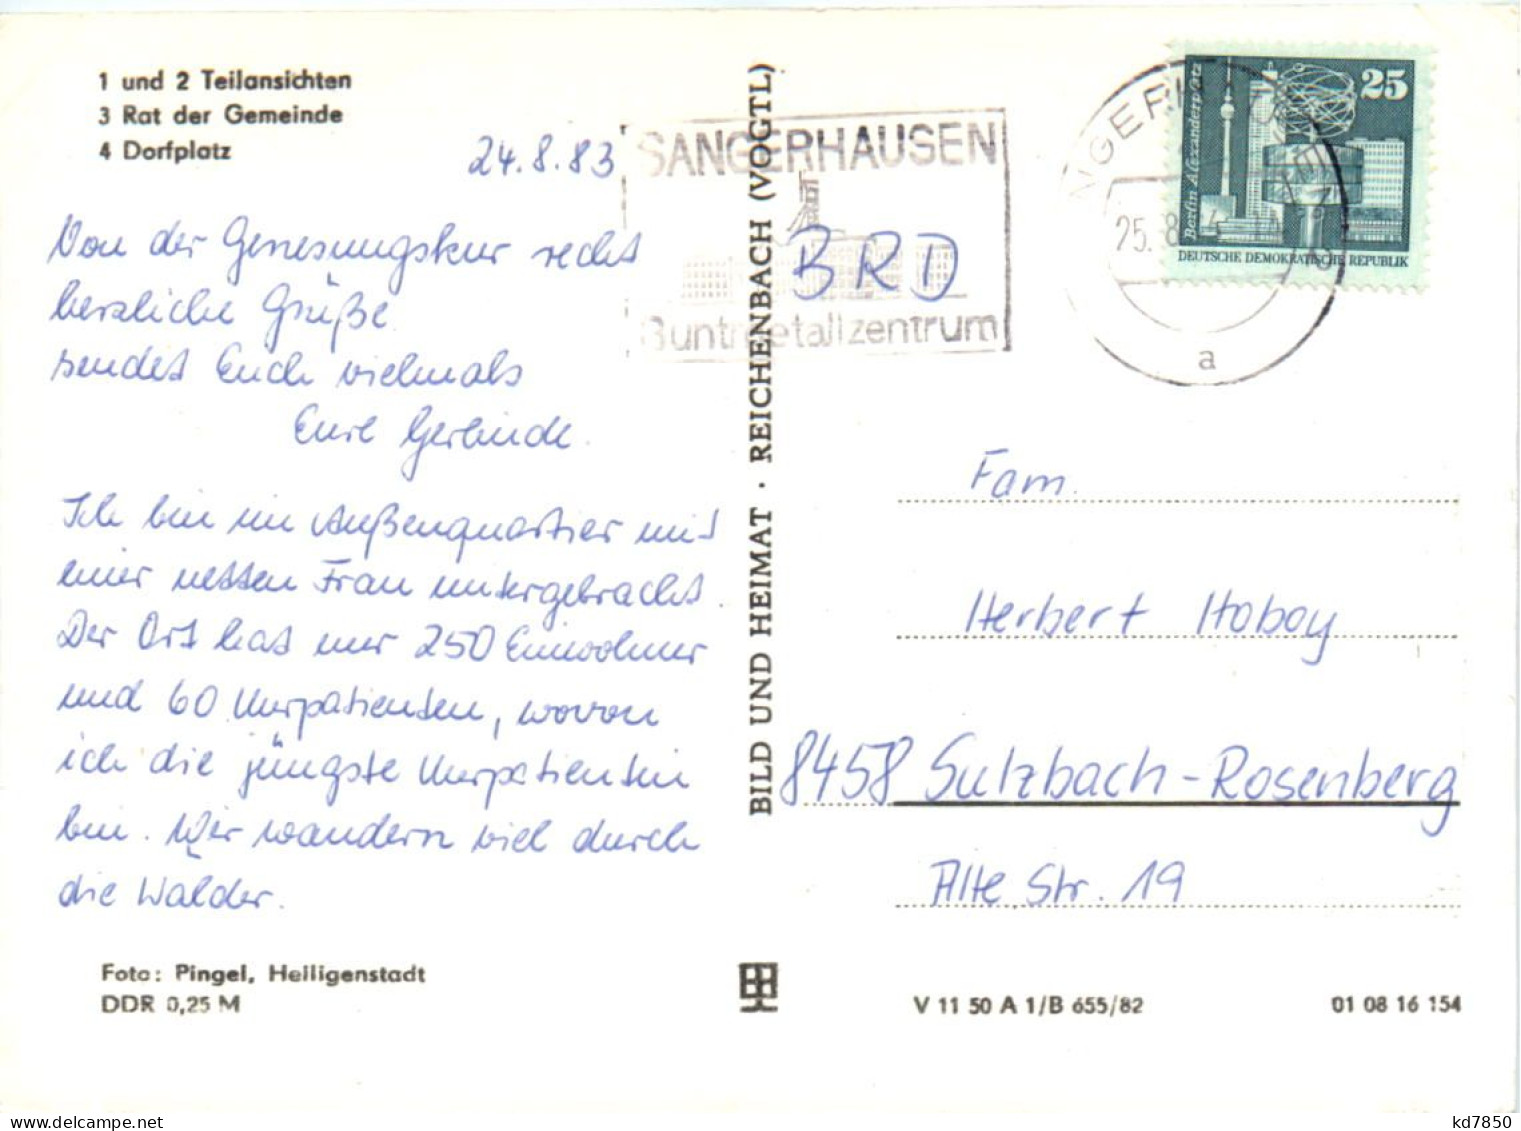 1 und 2 Teilansichten
3 Rat der Gemeinde
4 Dorfplatz
24.8.83
Von der Genesungskur recht
herzliche Grüße
sendet Euch vielmals
Eure Gerlinde.
Ich bin im Außenquartier mit
einer netten Frau untergebracht.
Der Ort hat nur 250 Einwohner
und 60 Kurpatienten, wovon
ich die jüngste Kurpatientin
bin. Wir wandern viel durch
die Wälder.
Foto: Pingel, Heiligenstadt
DDR 0,25 M
BILD UND HEIMAT · REICHENBACH (VOGTL)
SANGERHAUSEN
BRD
Buntmetallzentrum
25.8
a
Berlin Alexanderplatz
25
DEUTSCHE DEMOKRATISCHE REPUBLIK
Fam.
Herbert Hoboy
8458 Sulzbach-Rosenberg
Alte Str. 19
V 11 50 A 1/B 655/82
01 08 16 154
kd7850